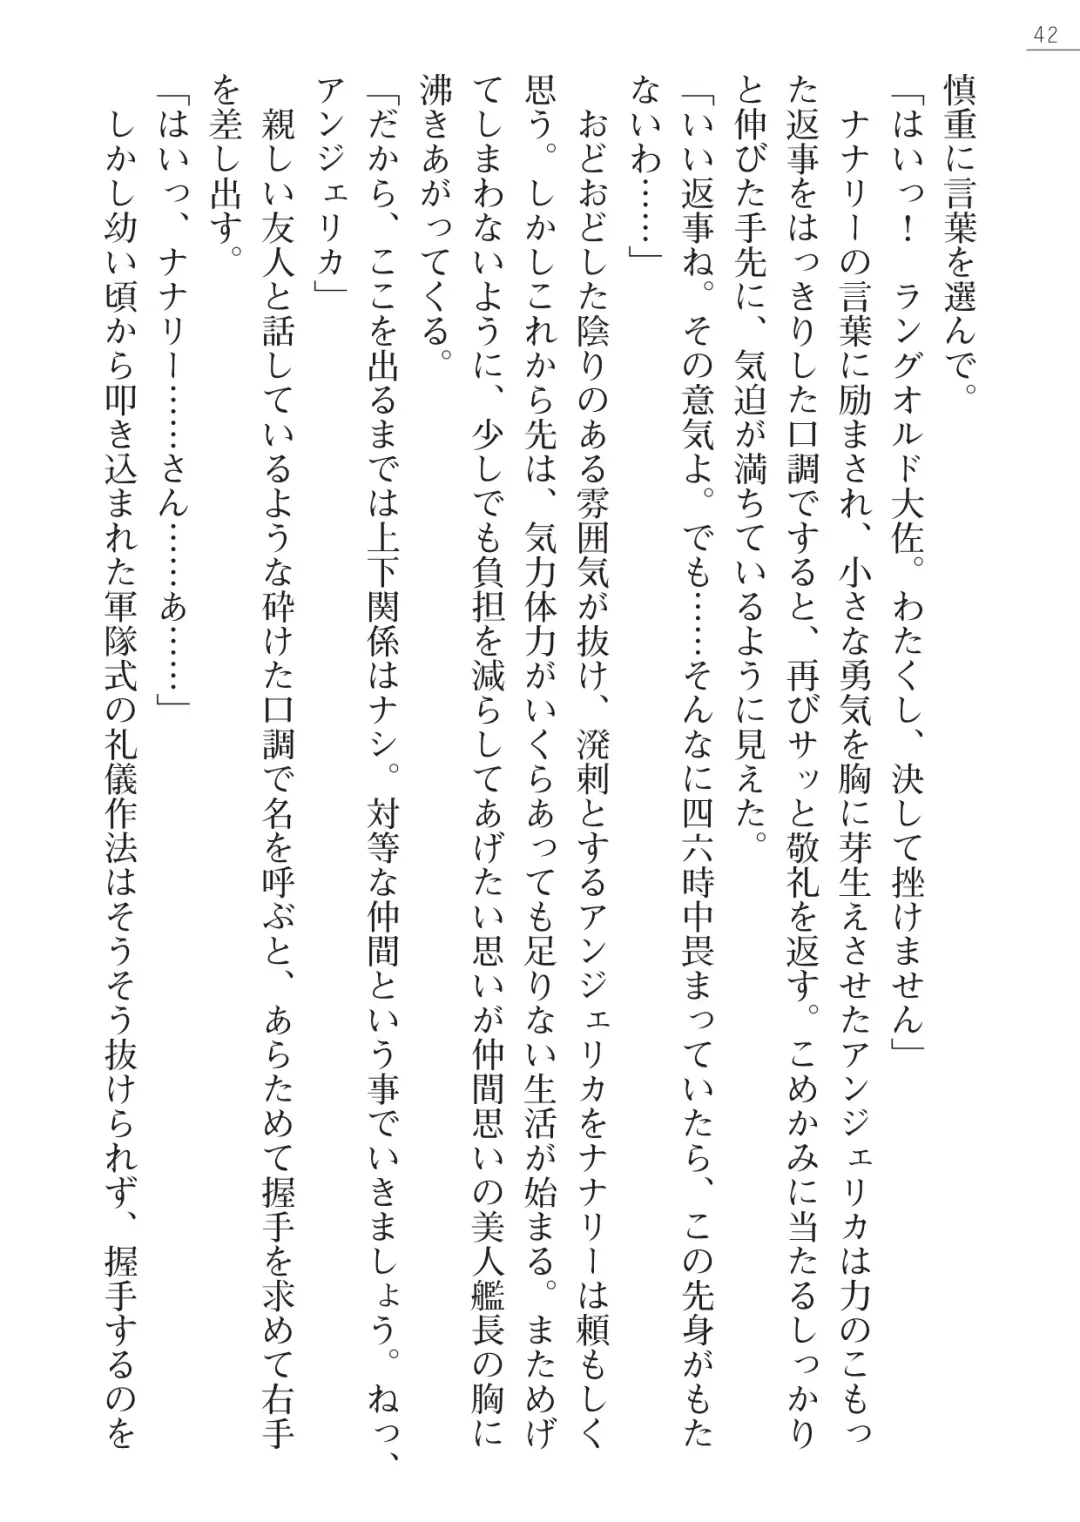 42
慎重に言葉を選んで。
「はいっ！　ラングオルド大佐。わたくし、決して挫けません」
　ナナリーの言葉に励まされ、小さな勇気を胸に芽生えさせたアンジェリカは力のこもっ
た返事をはっきりした口調ですると、再びサッと敬礼を返す。こめかみに当たるしっかり
と伸びた手先に、気迫が満ちているように見えた。
「いい返事ね。その意気よ。でも……そんなに四六時中畏まっていたら、この先身がもた
ないわ……」
　おどおどした陰りのある雰囲気が抜け、溌剌とするアンジェリカをナナリーは頼もしく
思う。しかしこれから先は、気力体力がいくらあっても足りない生活が始まる。まためげ
てしまわないように、少しでも負担を減らしてあげたい思いが仲間思いの美人艦長の胸に
沸きあがってくる。
「だから、ここを出るまでは上下関係はナシ。対等な仲間という事でいきましょう。ねっ、
アンジェリカ」
　親しい友人と話しているような砕けた口調で名を呼ぶと、あらためて握手を求めて右手
を差し出す。
「はいっ、ナナリー……さん……あ……」
　しかし幼い頃から叩き込まれた軍隊式の礼儀作法はそうそう抜けられず、握手するのを